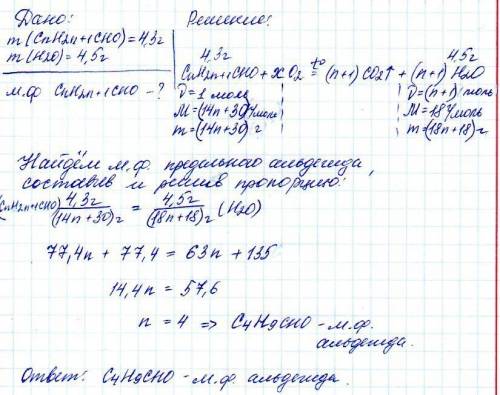 Дано:
m(CnH2n+1CHO)=4,3г
m(H2O)=4,5г
м.ф. CnH2n+1CHO-?
Решение:
4,3г 4,5г
CnH2n+1CHO + xO2 t° = (n+1)CO2↑ + (n+1)H2O
ν=1 моль ν=(n+1) моль
M=(14n+30)г/моль M=18г/моль
m=(14n+30)г m=(18n+18)г
Найдём м.ф. предельного альдегида,
составив и решив пропорцию:
(CnH2n+1CHO) 4,3г/(14n+30)г = 4,5г/(18n+18)г (H2O)
77,4n + 77,4 = 63n + 135
14,4n = 57,6
n = 4 => C4H9CHO - м.ф.
альдегида.
Ответ: C4H9CHO - м.ф. альдегида.